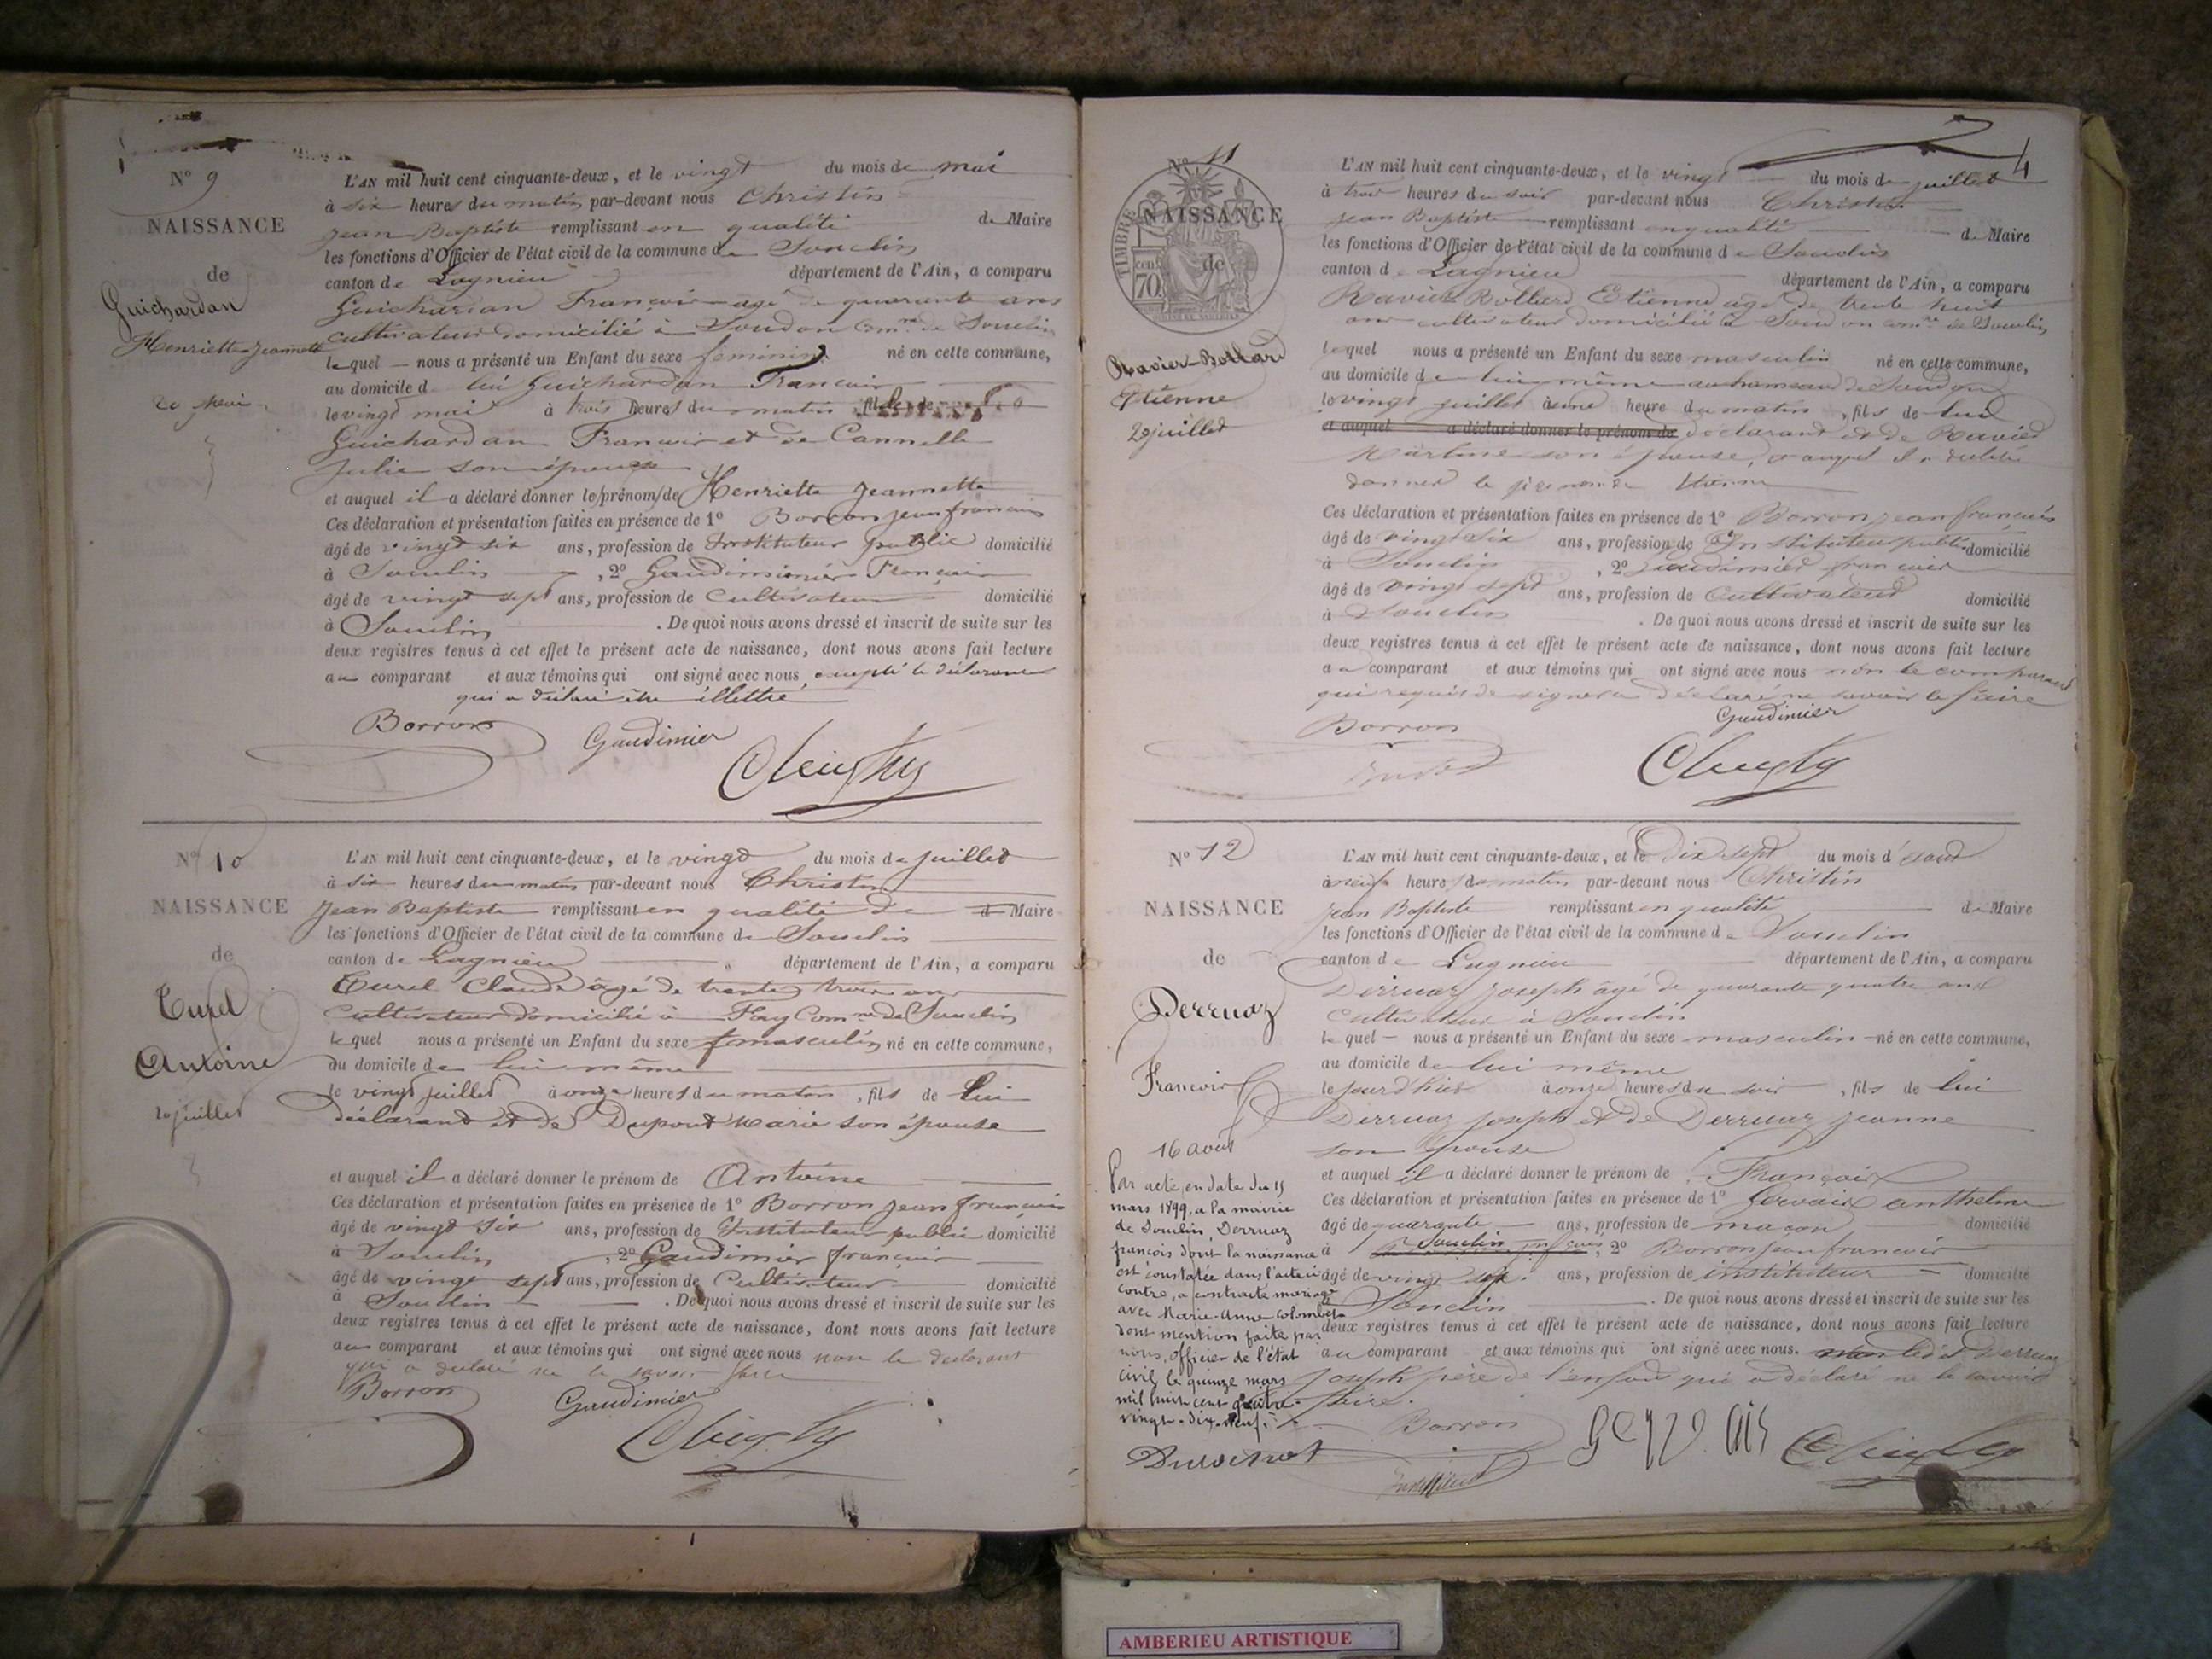 Nº 9
NAISSANCE
de
Guichardan
Henriette Jeannette
20 mai
L'AN mil huit cent cinquante-deux, et le vingt du mois de mai
à six heures du matin par-devant nous Christin
Jean Baptiste remplissant en qualité de Maire
les fonctions d'Officier de l'état civil de la commune de Souclin
canton de Lagnieu département de l'Ain, a comparu
Guichardan François âgé de quarante ans
cultivateur domicilié à Soudon Comne de Souclin
lequel nous a présenté un Enfant du sexe féminin né en cette commune,
au domicile de lui Guichardan François
le vingt mai à trois heures du matin
Guichardan François et de Cannelle
Julie son épouse
et auquel il a déclaré donner le prénom de Henriette Jeannette
Ces déclaration et présentation faites en présence de 1º Borron jean françois
âgé de vingt six ans, profession de Instituteur public domicilié
à Souclin , 2º Gaudimier François
âgé de vingt sept ans, profession de Cultivateur domicilié
à Souclin . De quoi nous avons dressé et inscrit de suite sur les
deux registres tenus à cet effet le présent acte de naissance, dont nous avons fait lecture
au comparant et aux témoins qui ont signé avec nous, excepté le déclarant
qui a déclaré être illettré
Borron Gaudimier Christin
Nº 10
NAISSANCE
de
Curel
Antoine
20 juillet
L'AN mil huit cent cinquante-deux, et le vingt du mois de juillet
à six heures du matin par-devant nous Christin
Jean Baptiste remplissant en qualité de de Maire
les fonctions d'Officier de l'état civil de la commune de Souclin
canton de Lagnieu département de l'Ain, a comparu
Curel Claude âgé de trente trois ans
cultivateur domicilié à Fay Comne de Souclin
lequel nous a présenté un Enfant du sexe masculin né en cette commune,
au domicile de lui même
le vingt juillet à onze heures du matin , fils de lui
déclarant et de Dupont Marie son épouse
et auquel il a déclaré donner le prénom de Antoine
Ces déclaration et présentation faites en présence de 1º Borron jean françois
âgé de vingt six ans, profession de Instituteur public domicilié
à Souclin , 2º Gaudimier françois
âgé de vingt sept ans, profession de Cultivateur domicilié
à Souclin . De quoi nous avons dressé et inscrit de suite sur les
deux registres tenus à cet effet le présent acte de naissance, dont nous avons fait lecture
au comparant et aux témoins qui ont signé avec nous non le déclarant
qui a déclaré ne le savoir faire
Borron Gaudimier Christin
4
Nº 11
NAISSANCE
de
TIMBRE
70
Ravier-Bollard
Etienne
20 juillet
L'AN mil huit cent cinquante-deux, et le vingt du mois de juillet
à trois heures du soir par-devant nous Christin
Jean Baptiste remplissant en qualité de Maire
les fonctions d'Officier de l'état civil de la commune de Souclin
canton de Lagnieu département de l'Ain, a comparu
Ravier Bollard Etienne âgé de trente huit
ans cultivateur domicilié à Soudon comne de Souclin
lequel nous a présenté un Enfant du sexe masculin né en cette commune,
au domicile de lui même au hameau de Soudon
le vingt juillet à une heure du matin , fils de lui
et auquel a déclaré donner le prénom de déclarant et de Ravier
son épouse, et auquel il a déclaré
donner le prénom de Etienne
Ces déclaration et présentation faites en présence de 1º Borron jean françois
âgé de vingt six ans, profession de Instituteur public domicilié
à Souclin , 2º Gaudimier françois
âgé de vingt sept ans, profession de Cultivateur domicilié
à Souclin . De quoi nous avons dressé et inscrit de suite sur les
deux registres tenus à cet effet le présent acte de naissance, dont nous avons fait lecture
au comparant et aux témoins qui ont signé avec nous non le comparant
qui requis de signer a déclaré ne savoir le faire
Borron Gaudimier Christin
Nº 12
NAISSANCE
de
Derruaz
François
16 août
Par acte en date du 15
mars 1899, a la mairie
de Souclin, Derruaz
françois dont la naissance
est constatée dans l'acte ci
contre, a contracté mariage
avec Marie-Anne Colombet
dont mention faite par
nous, officier de l'état
civil le quinze mars
mil huit cent quatre
vingt-dix-neuf.
L'AN mil huit cent cinquante-deux, et le Dix sept du mois d'aout
à neuf heures du matin par-devant nous Christin
Jean Baptiste remplissant en qualité de Maire
les fonctions d'Officier de l'état civil de la commune de Souclin
canton de Lagnieu département de l'Ain, a comparu
Derruaz joseph âgé de quarante quatre ans
Cultivateur à Souclin
lequel nous a présenté un Enfant du sexe masculin né en cette commune,
au domicile de lui même
le jour d'hier à onze heures du soir , fils de lui
Derruaz joseph et de Derruaz jeanne
son épouse
et auquel il a déclaré donner le prénom de François
Ces déclaration et présentation faites en présence de 1º Gervais anthelme
âgé de quarante ans, profession de maçon domicilié
à Souclin , 2º Borron jean françois
âgé de vingt six ans, profession de instituteur domicilié
à Souclin . De quoi nous avons dressé et inscrit de suite sur les
deux registres tenus à cet effet le présent acte de naissance, dont nous avons fait lecture
au comparant et aux témoins qui ont signé avec nous. Derruaz
Joseph père de l'enfant qui a déclaré ne le savoir
faire.
Borron Christin
AMBERIEU ARTISTIQUE